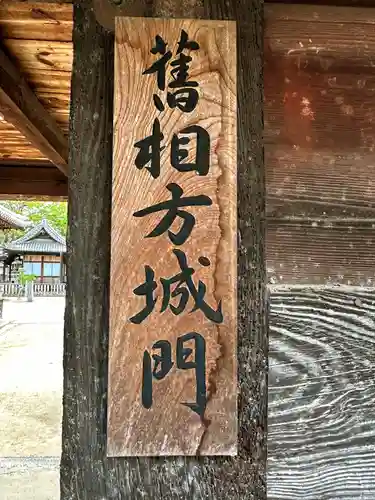 舊相方城門